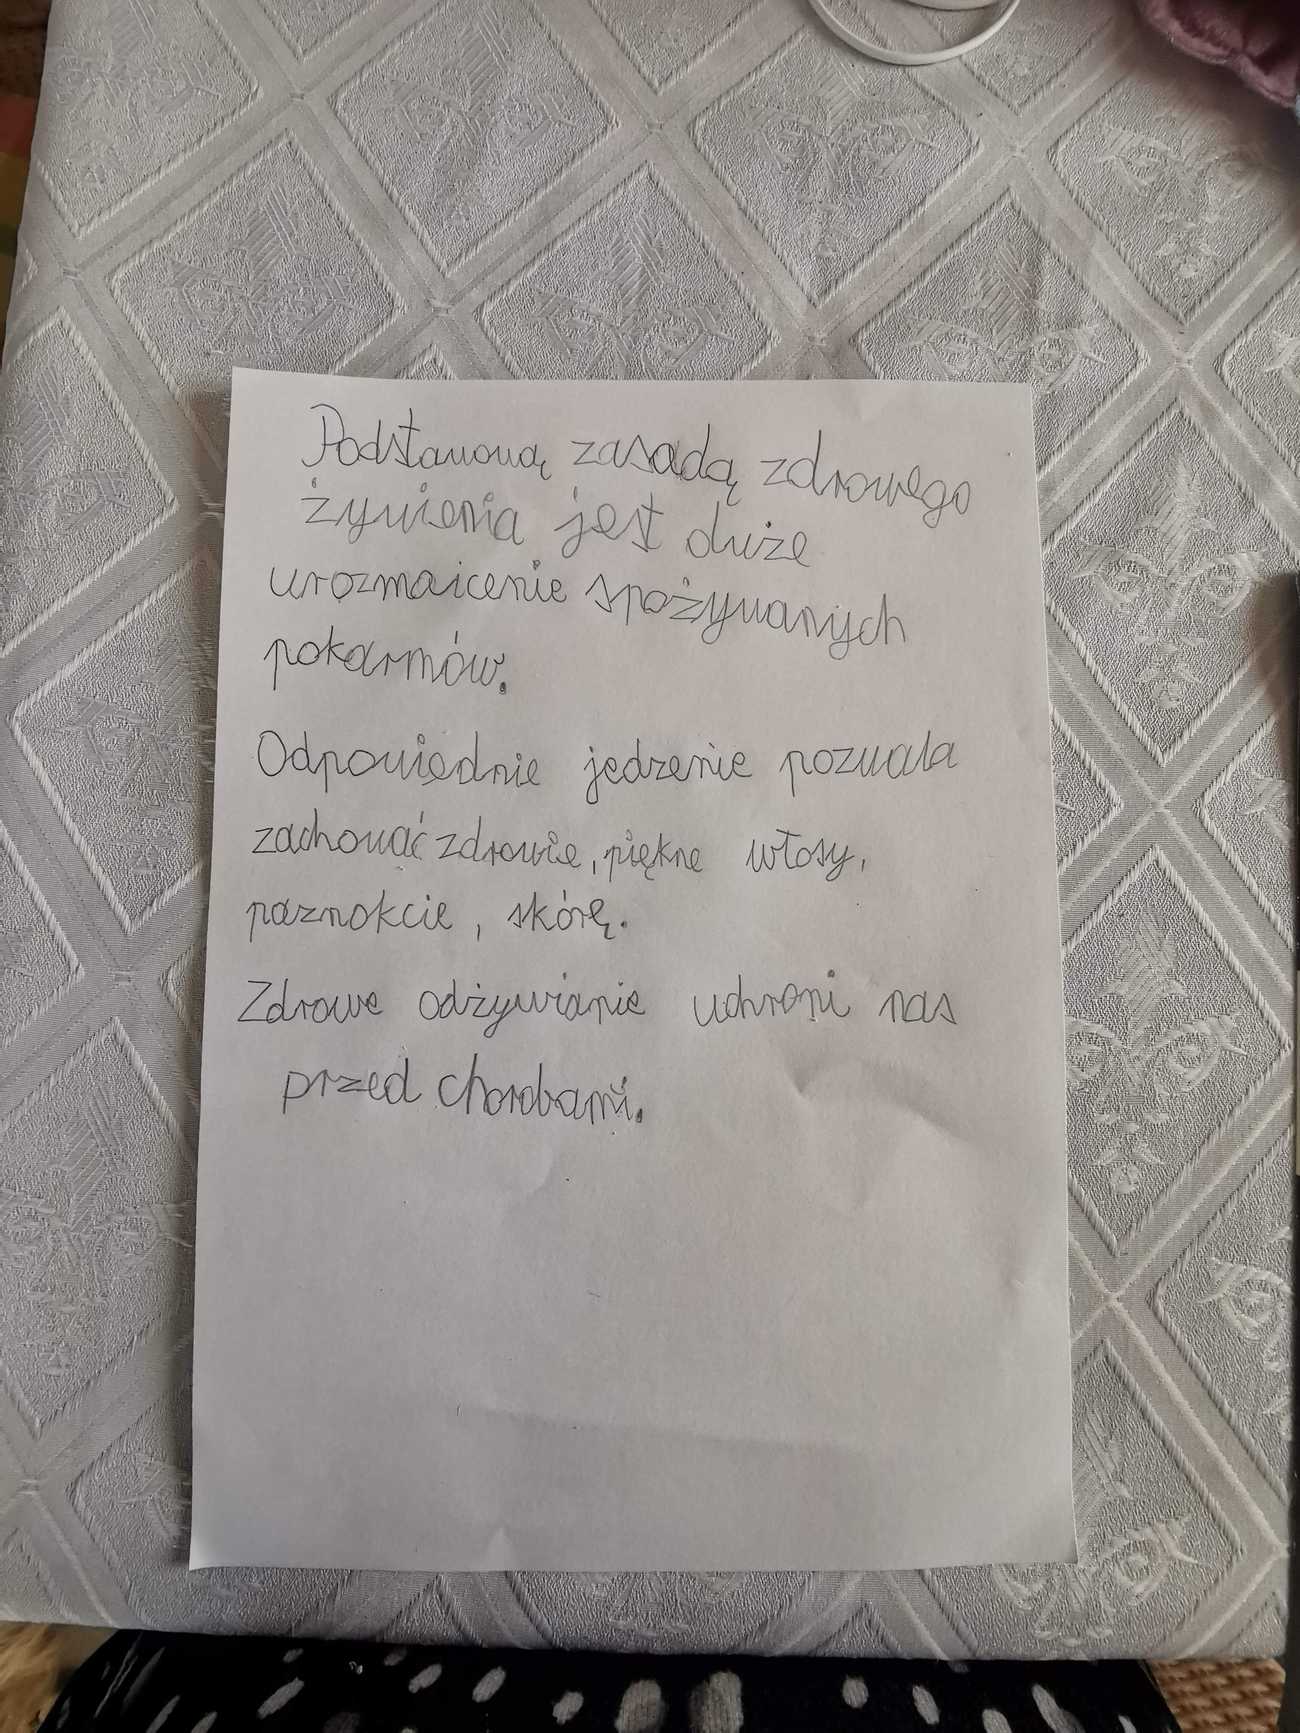 Podstawową zasadą zdrowego
żywienia jest duże
urozmaicenie spożywanych
pokarmów.
Odpowiednie jedzenie pozwala
zachować zdrowie, piękne włosy,
paznokcie, skórę.
Zdrowe odżywianie uchroni nas
przed chorobami.